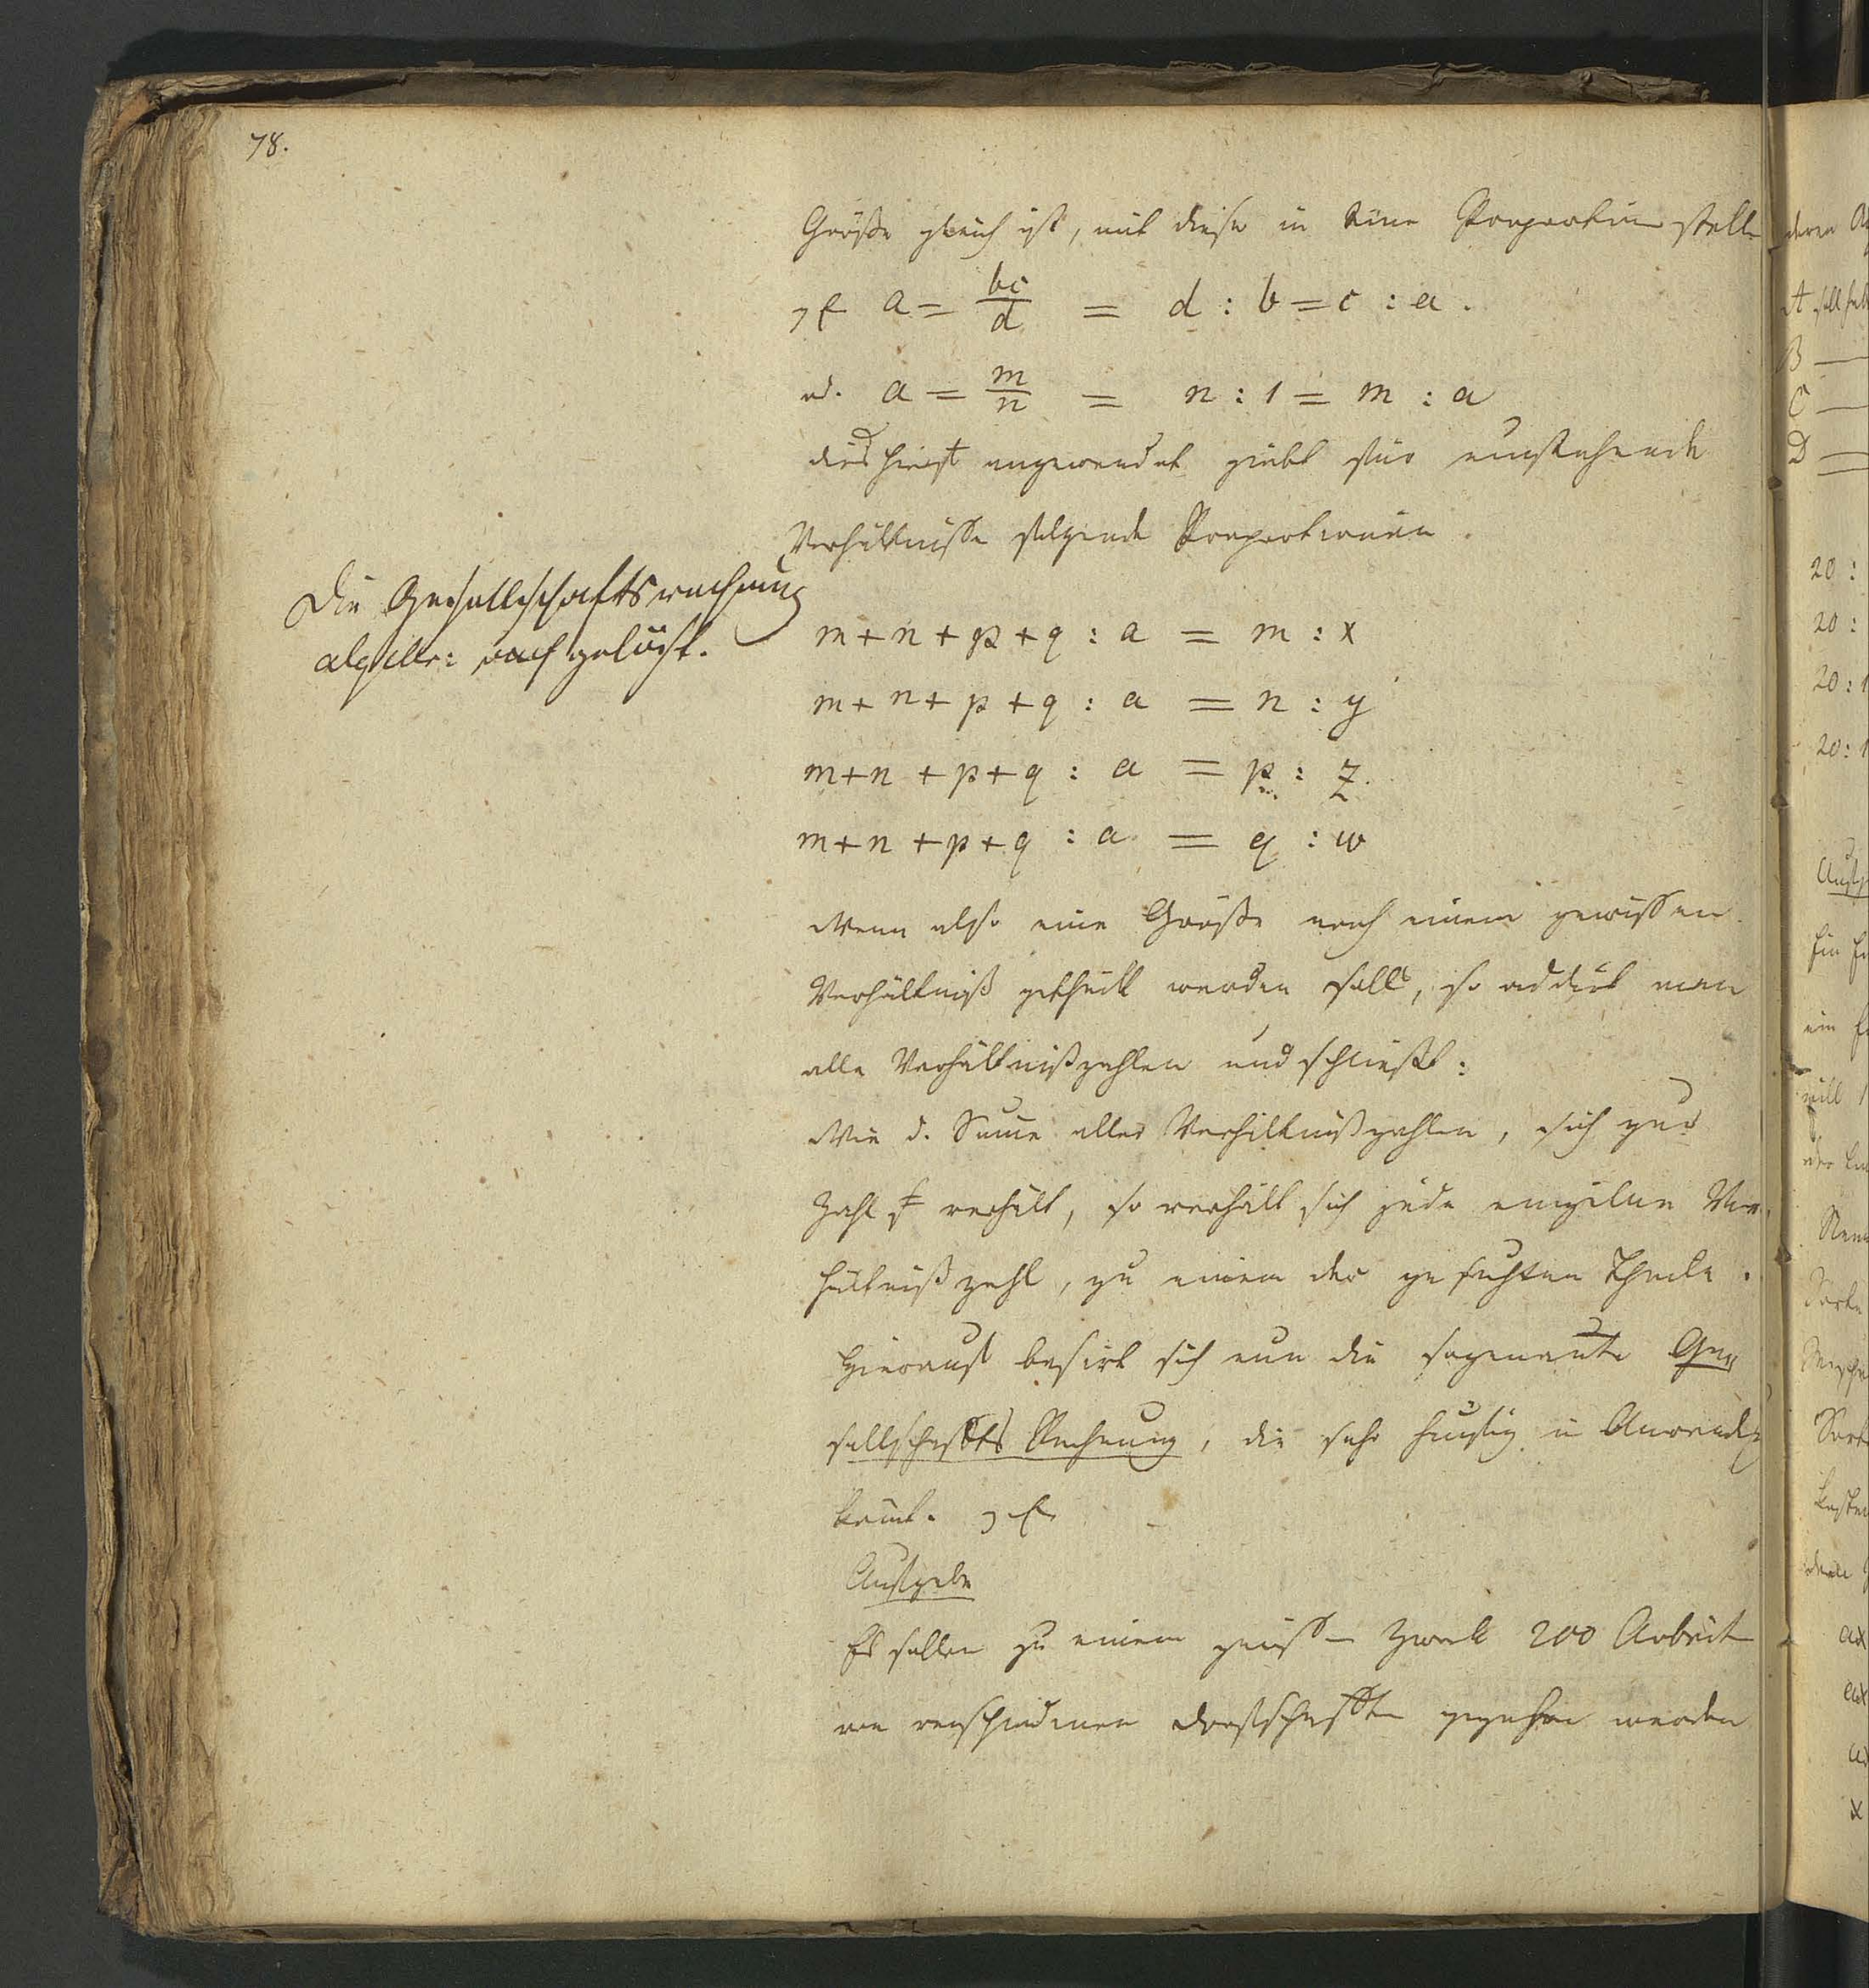 78.
Größe gleich ist, mit dieser in eine Proportion stelle
z E a = bc/d = d : b = c : a.
od. a = m/n = n : 1 = m : a
dies hierst angewendet giebt für umstehende
Verhältnisse folgende Proportionen.
Die Gesellschaftsrechnung
algebr: aufgelöst.
m+n+p+q : a = m : x
m+n+p+q : a = n : y
m+n+p+q : a = p : z.
m+n+p+q : a = q : w
Wenn also eine Größe nach einem gewissen
Verhältniß getheilt werden soll, so addirt man
alle Verhältnißzahlen und schließt:
Wie d. Sume aller Verhältnißzahlen, sich zur
Zahl verhält, so verhält sich jede einzelne Ver
hältnißzahl, zu einem der gesuchten Theile.
Hierauf basirt sich nun die sogenante Ge
sellschafts Rechnung, die sehr häufig in Anwendg
komt. z E
Aufgabe
Es sollen zu einem gewissen Zweck 200 Arbeiter
von verschiedenen Dorfschaften gegeben werden